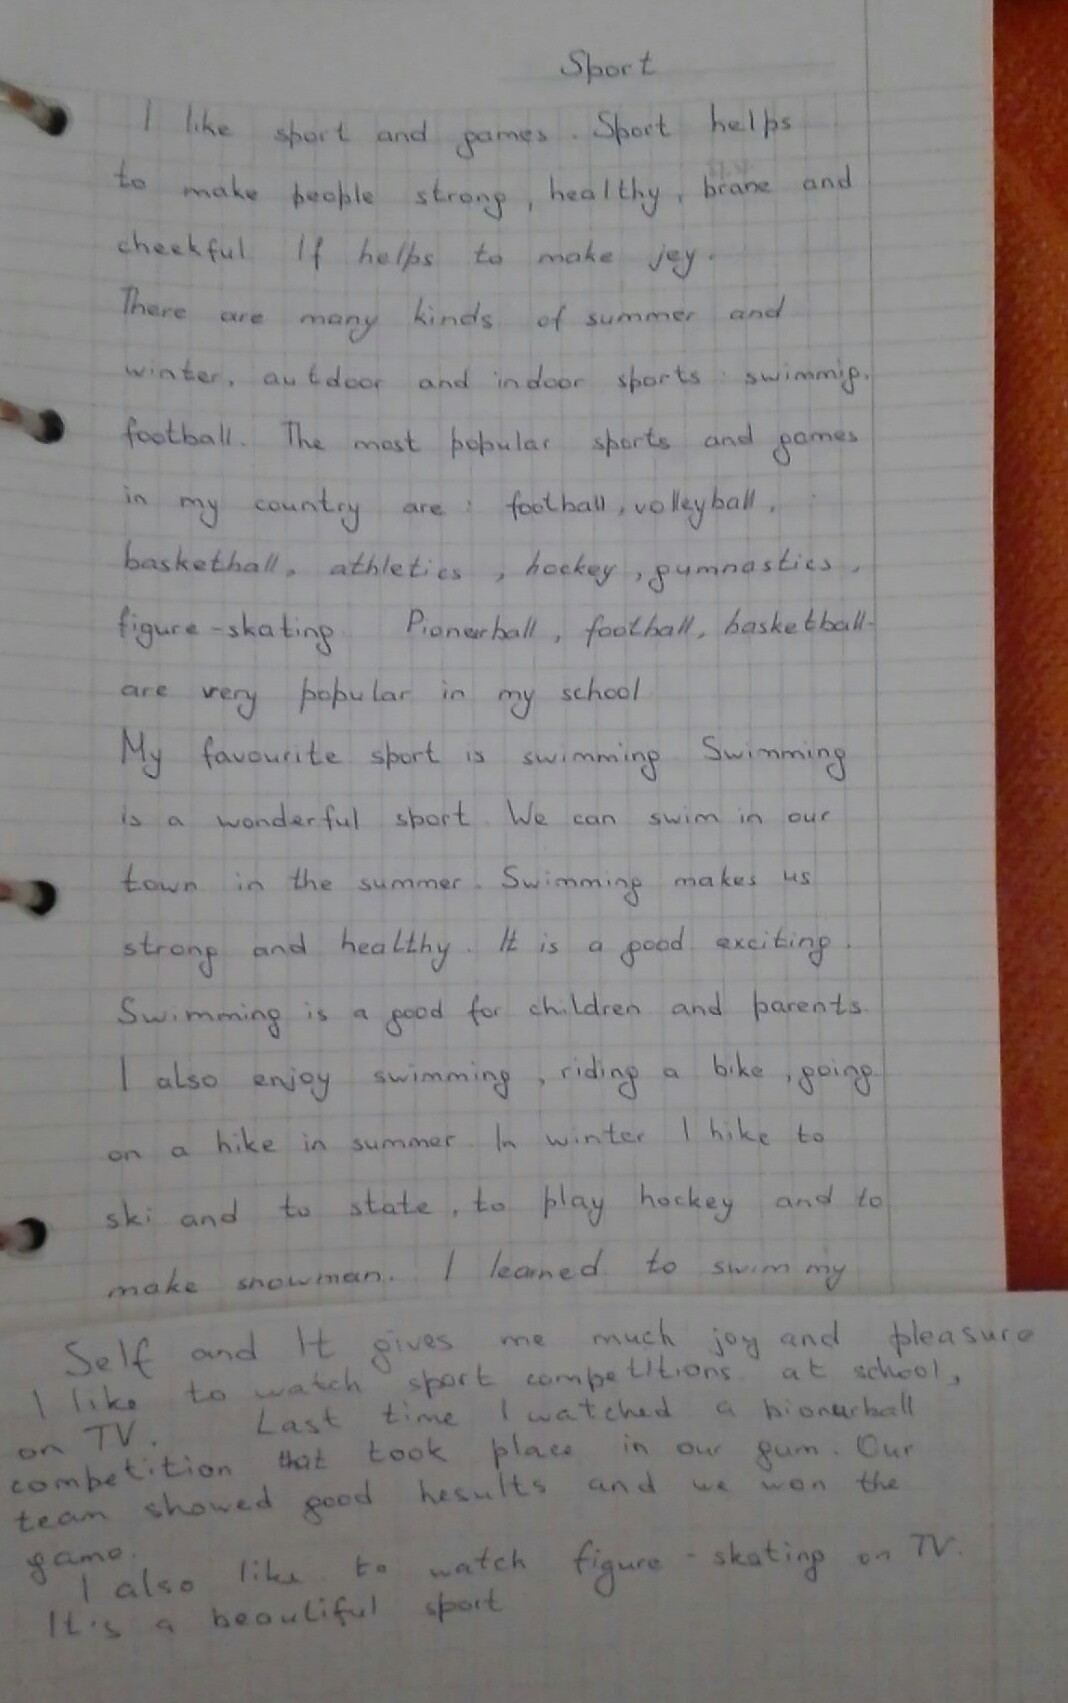 Sport
I like sport and games. Sport helps
to make people strong, healthy, brane and
cheekful. If helps to make jey.
There are many kinds of summer and
winter, autdoor and indoor sports: swimmip,
football. The most popular sports and games
in my country are: football, volleyball,
basketball, athletics, hockey, gumnastics,
figure-skating. Pionerball, football, basketball-
are very popular in my school
My favourite sport is swimming Swimming
is a wonderful sport. We can swim in our
town in the summer. Swimming makes us
strong and healthy. It is a good exciting.
Swimming is a good for children and parents.
I also enjoy swimming, riding a bike, going
on a hike in summer. In winter I hike to
ski and to state, to play hockey and to
make snowman. I learned to swim my
Self and It gives me much joy and pleasure
I like to watch sport competitions at school,
on TV. Last time I watched a pionerball
competition that took place in our gum. Our
team showed good hesults and we won the
game.
I also like to watch figure-skating on TV.
It's a beautiful sport